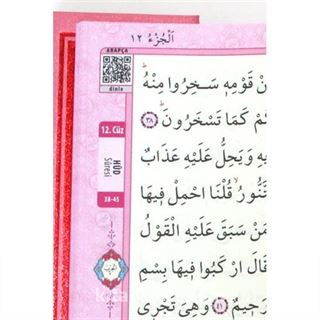 اَلْجُزْءُ ١٢
ARAPÇA
dinle
12. Cüz
HÛD
Sûresi
38-45
قَوْمِهٖ سَخِرُوا مِنْهُ
كَمَا تَسْخَرُونَ ٣٨
وَيَحِلُّ عَلَيْهِ عَذَابٌ
قُلْنَا احْمِلْ فٖيهَا
مَنْ سَبَقَ عَلَيْهِ الْقَوْلُ
قَالَ ارْكَبُوا فٖيهَا بِسْمِ
رَحٖيمٌ ٤١ وَهِيَ تَجْرٖي